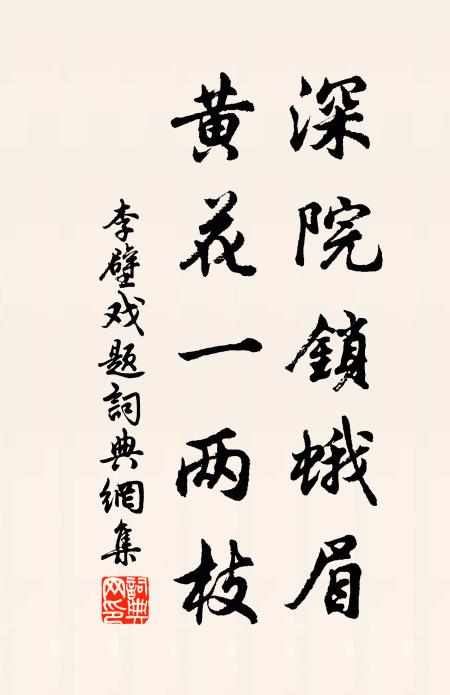 深院鎖蛾眉
黄花一两枝
李壁戏题詞典網集
詞典网印